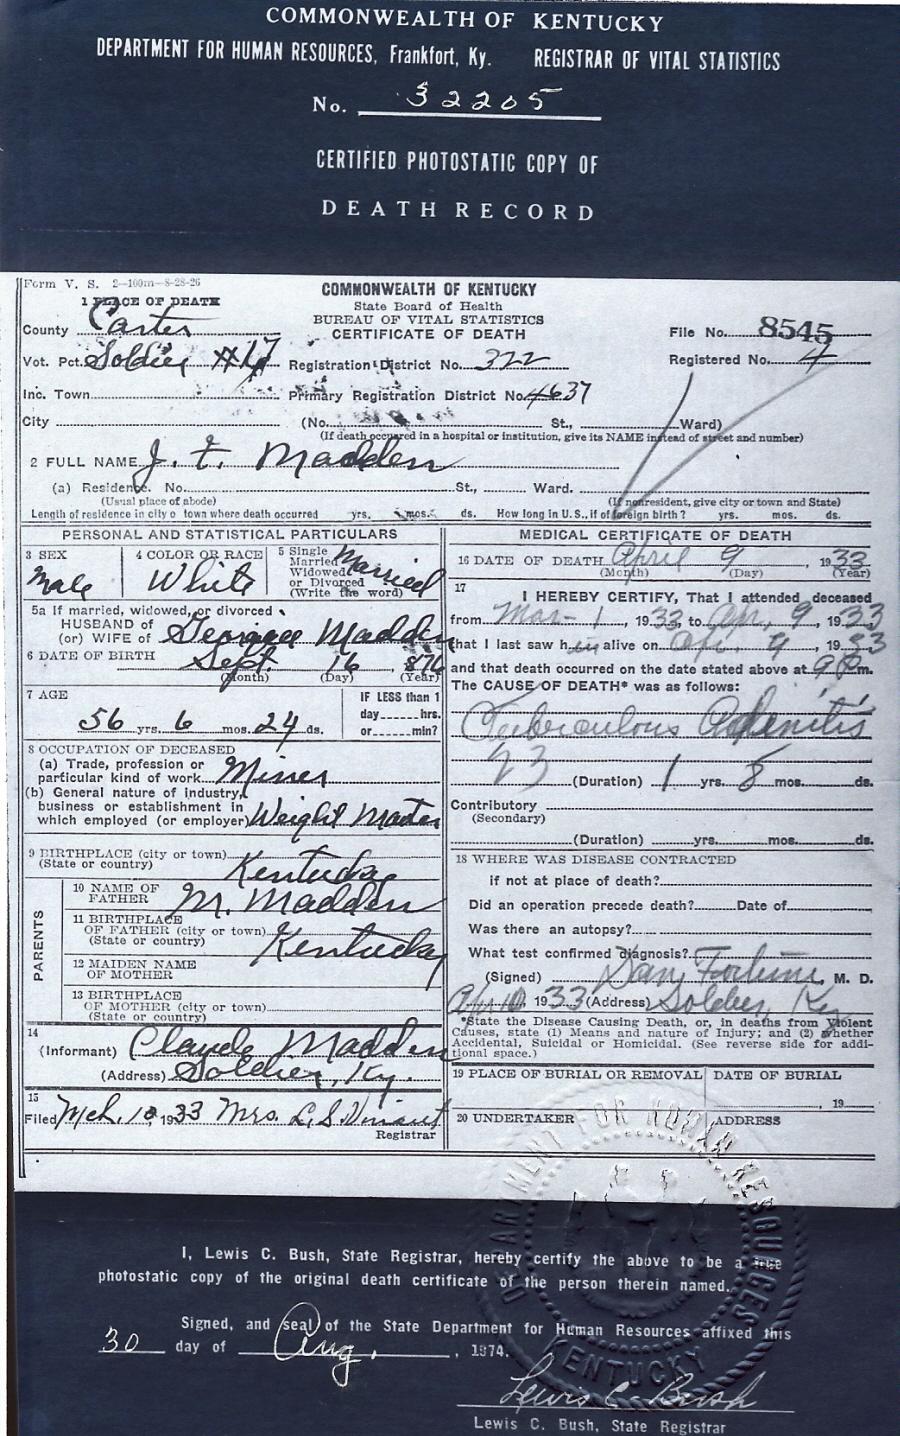 COMMONWEALTH OF KENTUCKY
DEPARTMENT FOR HUMAN RESOURCES, Frankfort, Ky. REGISTRAR OF VITAL STATISTICS
No. 32205
CERTIFIED PHOTOSTATIC COPY OF
DEATH RECORD
Form V. S. 2-100m-8-28-26
COMMONWEALTH OF KENTUCKY
State Board of Health
BUREAU OF VITAL STATISTICS
CERTIFICATE OF DEATH
1 PLACE OF DEATH
County Carter
File No. 8545
Vot. Pct. Soldier #17 Registration District No. 322 Registered No. 4
Inc. Town Primary Registration District No. 4637
City (No. St., Ward)
(If death occured in a hospital or institution, give its NAME instead of street and number)
2 FULL NAME J. T. Madden
(a) Residence. No. St., Ward.
(Usual place of abode) (If nonresident, give city or town and State)
Length of residence in city o town where death occurred yrs. mos. ds. How long in U.S., if of foreign birth? yrs. mos. ds.
PERSONAL AND STATISTICAL PARTICULARS
3 SEX Male
4 COLOR OR RACE White
5 Single Married Widowed or Divorced (Write the word) Married
5a If married, widowed, or divorced
HUSBAND of
(or) WIFE of Madden
6 DATE OF BIRTH Sept. 16 1876
(Month) (Day) (Year)
7 AGE
56 yrs. 6 mos. 24 ds.
IF LESS than 1
day hrs.
or min?
8 OCCUPATION OF DECEASED
(a) Trade, profession or
particular kind of work Miner
(b) General nature of industry,
business or establishment in
which employed (or employer) Weight Master
9 BIRTHPLACE (city or town)
(State or country) Kentucky
PARENTS
10 NAME OF
FATHER M. Madden
11 BIRTHPLACE
OF FATHER (city or town)
(State or country) Kentucky
12 MAIDEN NAME
OF MOTHER
13 BIRTHPLACE
OF MOTHER (city or town)
(State or country)
14
(Informant) Claude Madden
(Address) Soldier, Ky.
15
Filed Mch. 10, 1933 Mrs. L. S.
Registrar
MEDICAL CERTIFICATE OF DEATH
16 DATE OF DEATH April 9, 1933
(Month) (Day) (Year)
17
I HEREBY CERTIFY, That I attended deceased
from Mar- 1, 1933, to Ap. 9, 1933
that I last saw him alive on Apr. 9, 1933
and that death occurred on the date stated above at 9 P.m.
The CAUSE OF DEATH* was as follows:
Tuberculous Adenitis
23 (Duration) 1 yrs. 8 mos. ds.
Contributory
(Secondary)
(Duration) yrs. mos. ds.
18 WHERE WAS DISEASE CONTRACTED
if not at place of death?
Did an operation precede death? Date of
Was there an autopsy?
What test confirmed diagnosis?
(Signed) M. D.
Apr 10 1933 (Address) Soldier, Ky
*State the Disease Causing Death, or, in deaths from Violent
Causes, state (1) Means and Nature of Injury; and (2) whether
Accidental, Suicidal or Homicidal. (See reverse side for addi-
tional space.)
19 PLACE OF BURIAL OR REMOVAL DATE OF BURIAL
, 19
20 UNDERTAKER ADDRESS
DEPARTMENT FOR HUMAN RESOURCES
KENTUCKY
I, Lewis C. Bush, State Registrar, hereby certify the above to be a true
photostatic copy of the original death certificate of the person therein named.
Signed, and seal of the State Department for Human Resources affixed this
30 day of Aug. , 1974.
Lewis C. Bush
Lewis C. Bush, State Registrar